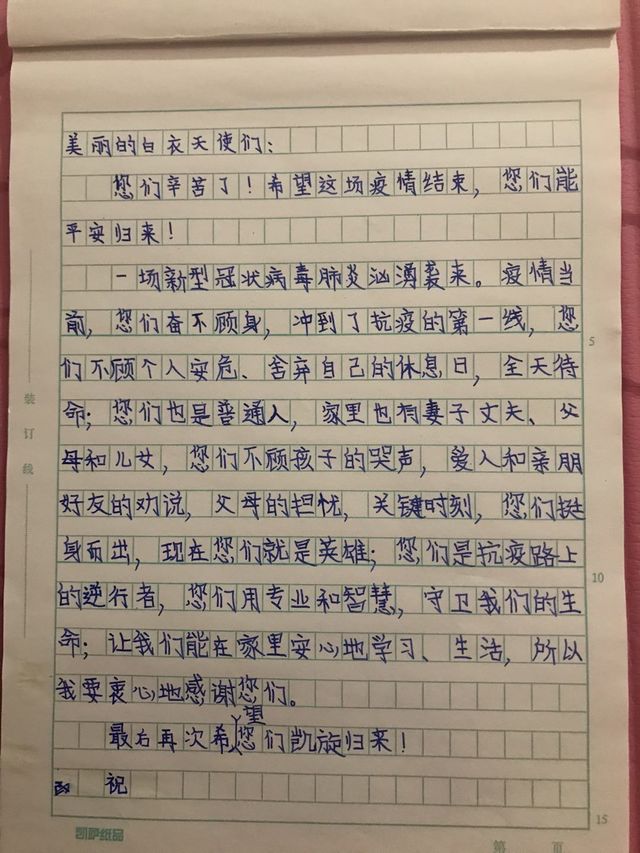 美丽的白衣天使们：
您们辛苦了！希望这场疫情结束，您们能
平安归来！
一场新型冠状病毒肺炎汹湧袭来。疫情当
前，您们奋不顾身，冲到了抗疫的第一线，您
们不顾个人安危、舍弃自己的休息日，全天待
命；您们也是普通人，家里也有妻子丈夫、父
母和儿女，您们不顾孩子的哭声，爱人和亲朋
好友的劝说，父母的担忧，关键时刻，您们挺
身而出，现在您们就是英雄；您们是抗疫路上
的逆行者，您们用专业和智慧，守卫我们的生
命；让我们能在家里安心地学习、生活，所以
我要衷心地感谢您们。
最后再次希望您们凯旋归来！
祝
装订线
5
10
15
凯萨纸品
第 页